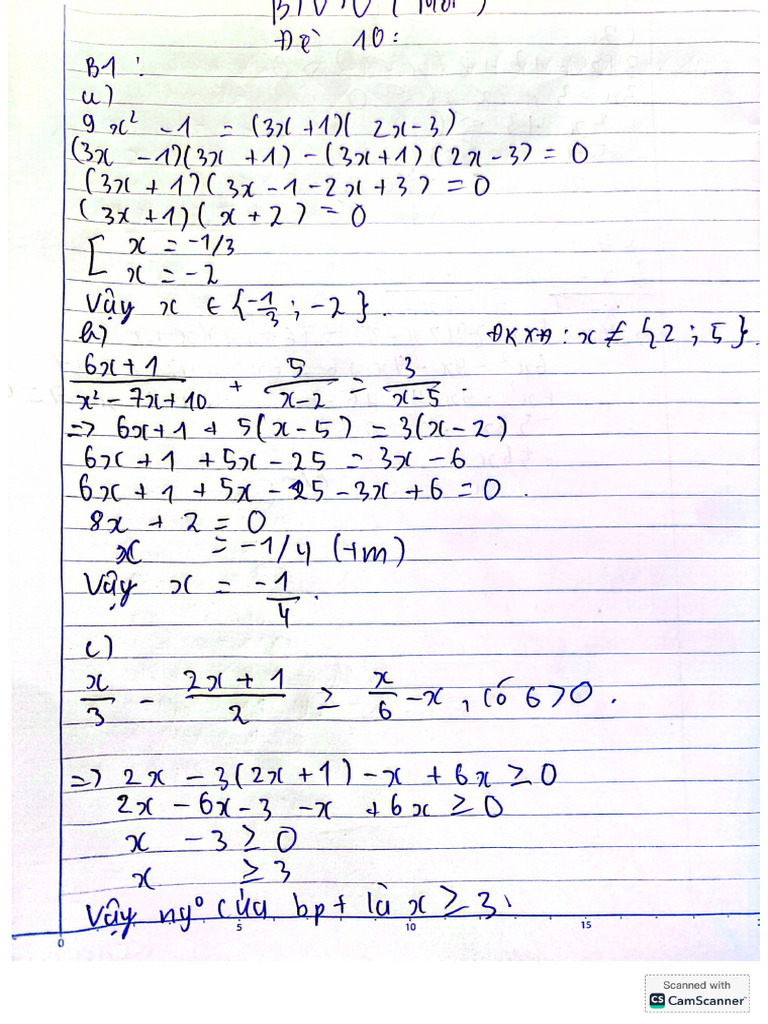 Đề 10:
B1:
a)
9x² - 1 = (3x + 1)(2x - 3)
(3x - 1)(3x + 1) - (3x + 1)(2x - 3) = 0
(3x + 1)(3x - 1 - 2x + 3) = 0
(3x + 1)(x + 2) = 0
[ x = -1/3
x = -2
Vậy x ∈ {-1/3 ; -2}.
b) ĐKXĐ: x ≠ {2 ; 5}.
(6x + 1)/(x² - 7x + 10) + 5/(x - 2) = 3/(x - 5).
=> 6x + 1 + 5(x - 5) = 3(x - 2)
6x + 1 + 5x - 25 = 3x - 6
6x + 1 + 5x - 25 - 3x + 6 = 0.
8x + 2 = 0
x = -1/4 (tm)
Vậy x = -1/4.
c)
x/3 - (2x + 1)/2 ≥ x/6 - x, có 6 > 0.
=> 2x - 3(2x + 1) - x + 6x ≥ 0
2x - 6x - 3 - x + 6x ≥ 0
x - 3 ≥ 0
x ≥ 3
Vậy ng° của bpt là x ≥ 3.
0 5 10 15
Scanned with
CS CamScanner